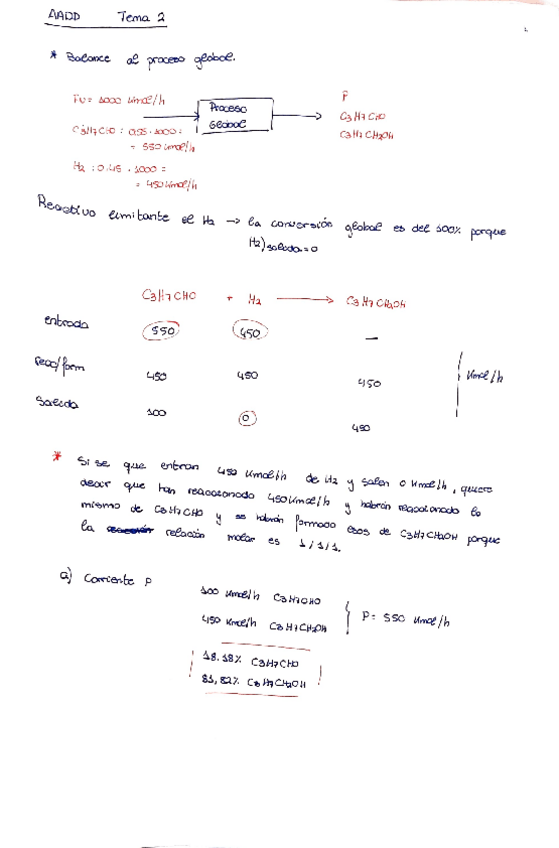 AADD Tema 2
* Balance al proceso global.
Fv = 1000 Kmol/h
Proceso
Global
P
C3H7CHO
C3H7CH2OH
C3H7CHO : 0.55 · 1000 =
= 550 Kmol/h
H2 : 0.45 · 1000 =
= 450 Kmol/h
Reactivo limitante el H2 → la conversión global es del 100% porque
H2)salida = 0
C3H7CHO + H2 → C3H7CH2OH
entrada 550 450 —
reac/form 450 450 450 Kmol/h
Salida 100 0 450
* Si se que entran 450 Kmol/h de H2 y salen 0 Kmol/h, quiere
decir que han reaccionado 450 Kmol/h y habrán reaccionado lo
mismo de C3H7CHO y se habrán formado esos de C3H7CH2OH porque
la relación molar es 1/1/1.
a) Corriente P
100 Kmol/h C3H7CHO
450 Kmol/h C3H7CH2OH
P = 550 Kmol/h
18.18% C3H7CHO
81,82% C3H7CH2OH